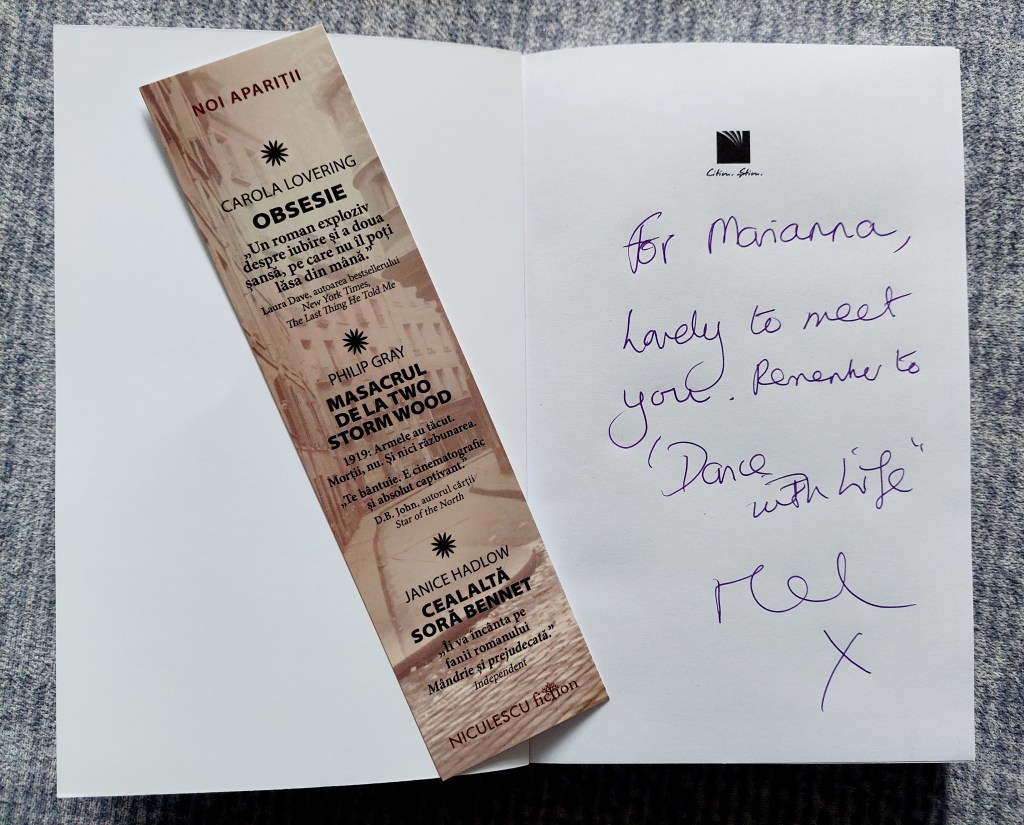 NOI APARIȚII
CAROLA LOVERING
OBSESIE
„Un roman exploziv
despre iubire și a doua
șansă, pe care nu îl poți
lăsa din mână.”
Laura Dave, autoarea bestsellerului
New York Times,
The Last Thing He Told Me
PHILIP GRAY
MASACRUL
DE LA TWO
STORM WOOD
1919: Armele au tăcut.
Morții, nu. Și nici răzbunarea.
„Te bântuie. E cinematografic
și absolut captivant.”
D.B. John, autorul cărții
Star of the North
JANICE HADLOW
CEALALTĂ
SORĂ BENNET
„Îi va încânta pe
fanii romanului
Mândrie și prejudecată.”
Independent
NICULESCU fiction
Citim. Știm.
For Marianna,
Lovely to meet
you. Remember to
'Dance
with Life"
Mel
X